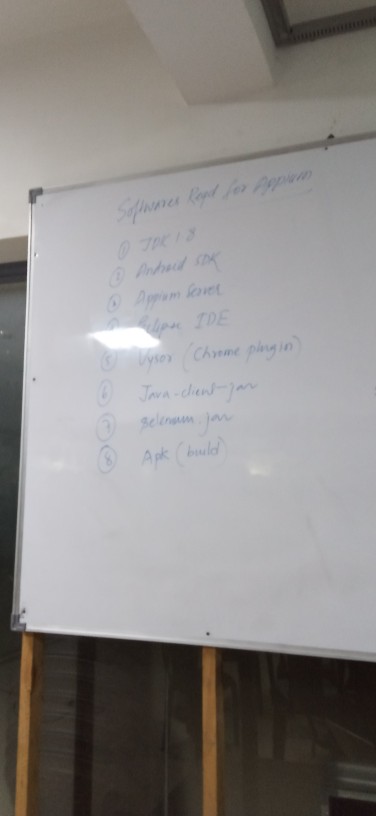 Softwares Reqd for Appium
① JDK 1.8
② Android SDK
③ Appium Server
Eclipse IDE
⑤ Vysor (Chrome plugin)
⑥ Java-client-jar
⑦ Selenium.jar
⑧ Apk (build)